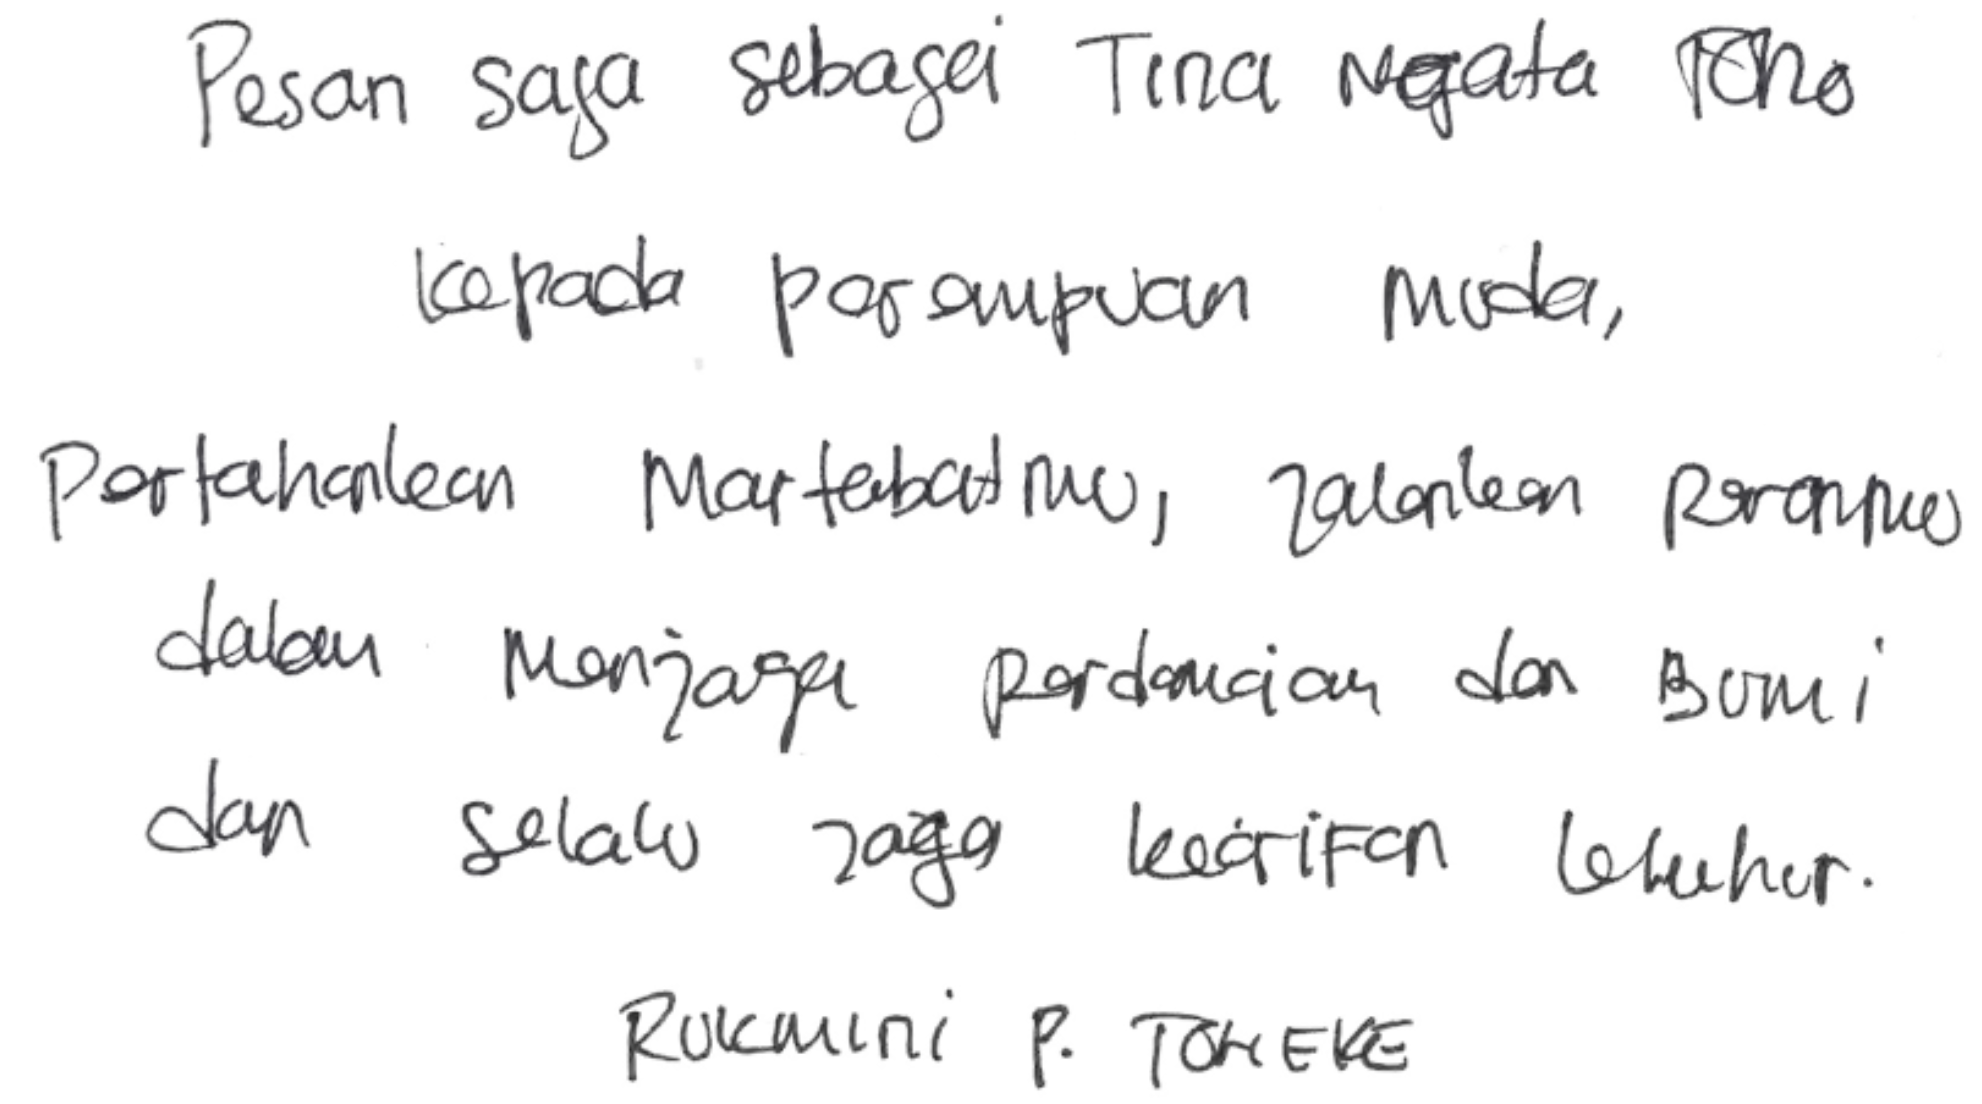 Pesan saya sebagai Tina Ngata Toro
kepada perempuan muda,
Pertahankan Martabatmu, jalankan peranmu
dalam Menjaga perdamaian dan Bumi
dan selalu jaga kearifan leluhur.
RUKMINI P. TOHEKE